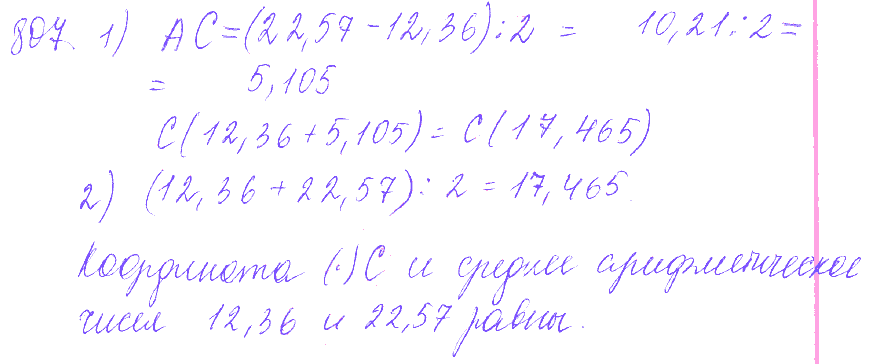 807. 1) AC=(22,57-12,36):2 = 10,21:2=
= 5,105
C(12,36+5,105)= C(17,465)
2) (12,36+22,57): 2 =17,465.
Координата (·) C и среднее арифметическое
чисел 12,36 и 22,57 равны.